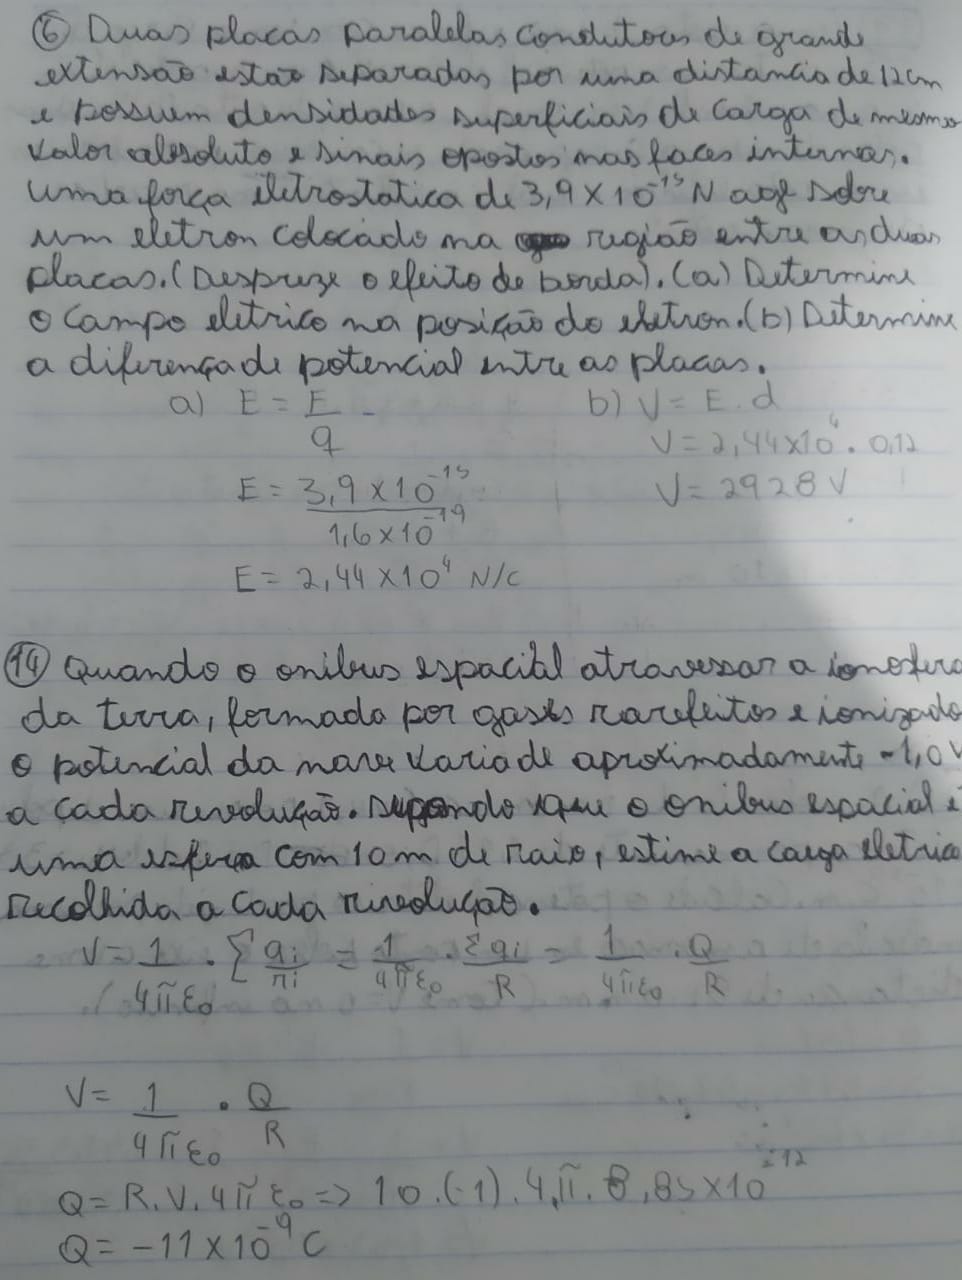 ⑥ Duas placas paralelas condutoras de grande
extensão estão separadas por uma distancia de 12cm
e possuem densidades superficiais de carga de mesmo
valor absoluto e sinais opostos nas faces internas.
Uma força eletrostatica de 3,9 X 10⁻¹⁵ N age sobre
um eletron colocado na região entre as duas
placas. (Despreze o efeito de borda). (a) Determine
o campo eletrico na posição do eletron. (b) Determine
a diferença de potencial entre as placas.
a) E = F/q b) V = E . d
V = 2,44x10⁴ . 0,12
E = 3,9 x 10⁻¹⁵ / 1,6 x 10⁻¹⁹ V = 2928 V
E = 2,44 x 10⁴ N/C
⑭ Quando o onibus espacial atravessar a ionosfera
da terra, formada por gases rarefeitos e ionizado
o potencial da nave varia de aproximadamente -1,0 V
a cada revolução. Supondo que o onibus espacial é
uma esfera com 10 m de raio, estime a carga eletrica
recolhida a cada revolução.
V = 1/4πε₀ . Σ qi/ri = 1/4πε₀ . Σqi/R = 1/4πε₀ . Q/R
V = 1/4πε₀ . Q/R
Q = R.V.4πε₀ => 10.(-1).4.π.8,85x10⁻¹²
Q = -11 x 10⁻⁹ C